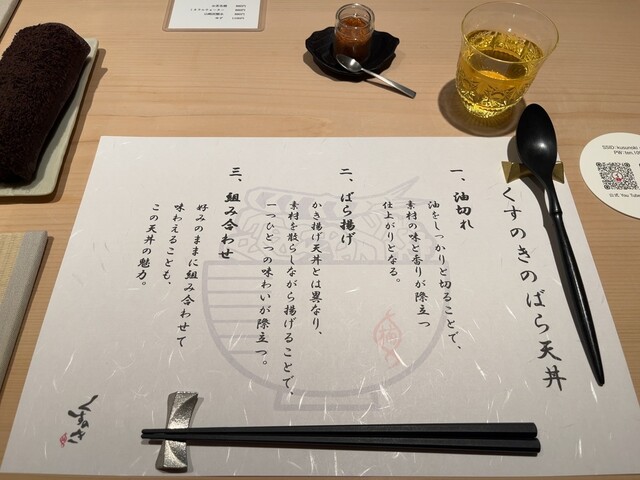 くすのきのばら天丼
一、油切れ
油をしっかりと切ることで、
素材の味と香りが際立つ
仕上がりとなる。
二、ばら揚げ
かき揚げ天丼とは異なり、
素材を散らしながら揚げることで、
一つひとつの味わいが際立つ。
三、組み合わせ
好みのままに組み合わせて
味わえることも、
この天丼の魅力。
くすのき